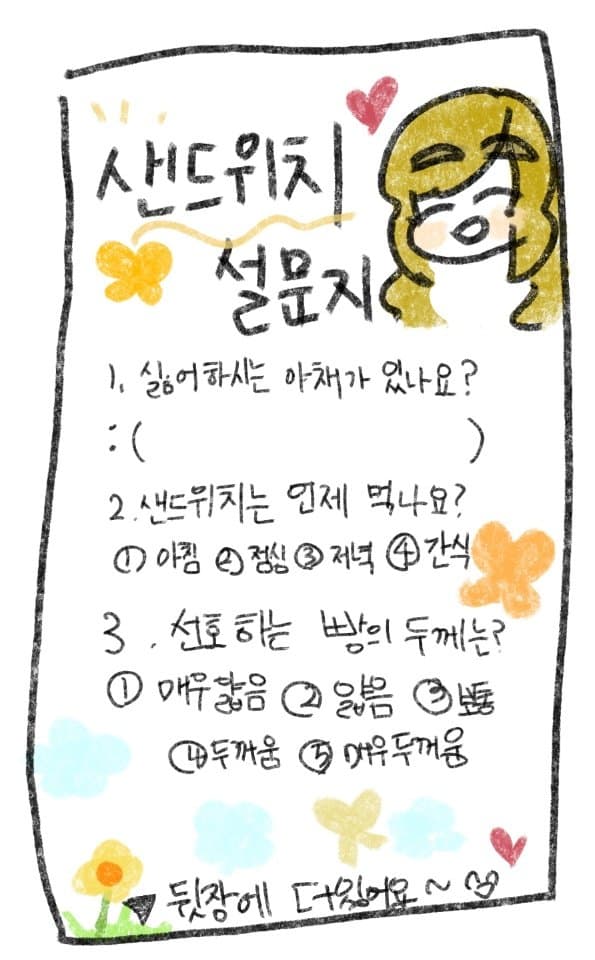 샌드위치
설문지
1. 싫어하시는 야채가 있나요?
: (                    )
2. 샌드위치는 언제 먹나요?
① 아침 ② 점심 ③ 저녁 ④ 간식
3. 선호하는 빵의 두께는?
① 매우얇음 ② 얇음 ③ 보통
④ 두꺼움 ⑤ 매우두꺼움
뒷장에 더있어요~